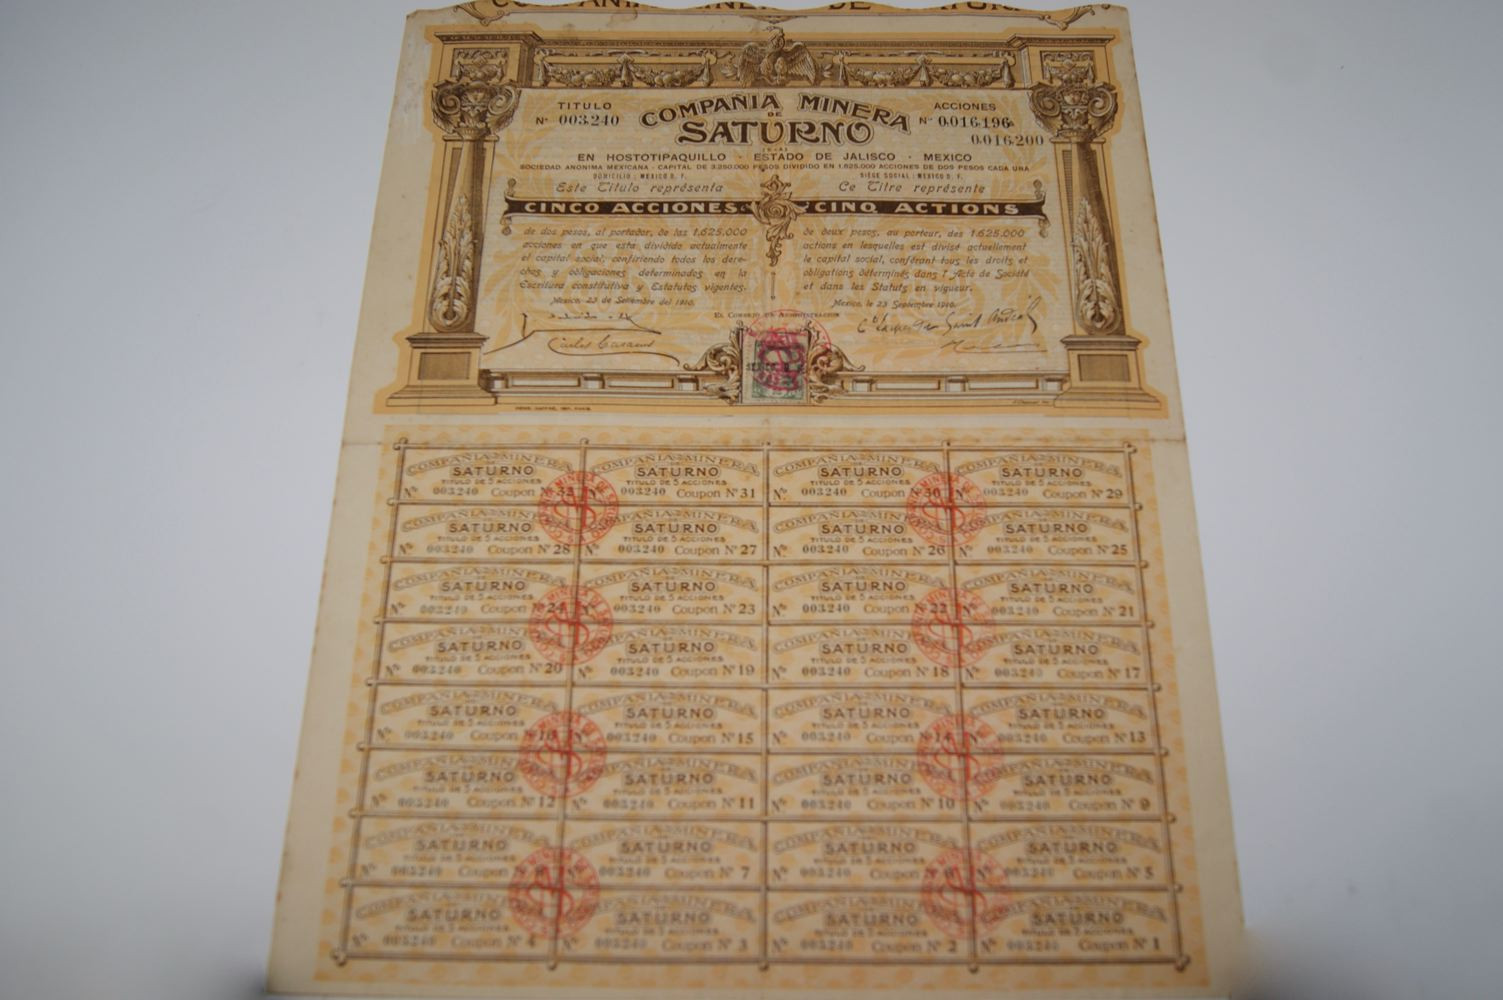 COMPAÑIA MINERA DE SATURNO
TITULO
Nº 003.240
COMPAÑIA MINERA
DE
SATURNO
(S.A.)
ACCIONES
Nº 0.016.196 a
0.016.200
EN HOSTOTIPAQUILLO - ESTADO DE JALISCO - MEXICO
SOCIEDAD ANONIMA MEXICANA - CAPITAL DE 3.250.000 PESOS DIVIDIDO EN 1.625.000 ACCIONES DE DOS PESOS CADA UNA
DOMICILIO : MEXICO D. F.
SIÈGE SOCIAL : MEXICO D. F.
Este Titulo représenta
Ce Titre représente
CINCO ACCIONES
CINQ ACTIONS
de dos pesos, al portador, de las 1.625.000
acciones en que esta dividido actualmente
el capital social, confiriendo todos los dere-
chos y obligaciones determinados en la
Escritura constitutiva y Estatutos vigentes.
Mexico, 23 de Setiembre del 1910.
de deux pesos, au porteur, des 1.625.000
actions en lesquelles est divisé actuellement
le capital social, conférant tous les droits et
obligations déterminés dans l'Acte de Société
et dans les Statuts en vigueur.
Mexico, le 23 Septembre 1910.
EL CONSEJO DE ADMINISTRACION
COMPAÑIA MINERA DE SATURNO TITULO DE 5 ACCIONES Nº 003240 Coupon Nº 32
COMPAÑIA MINERA DE SATURNO TITULO DE 5 ACCIONES Nº 003240 Coupon Nº 31
COMPAÑIA MINERA DE SATURNO TITULO DE 5 ACCIONES Nº 003240 Coupon Nº 30
COMPAÑIA MINERA DE SATURNO TITULO DE 5 ACCIONES Nº 003240 Coupon Nº 29
COMPAÑIA MINERA DE SATURNO TITULO DE 5 ACCIONES Nº 003240 Coupon Nº 28
COMPAÑIA MINERA DE SATURNO TITULO DE 5 ACCIONES Nº 003240 Coupon Nº 27
COMPAÑIA MINERA DE SATURNO TITULO DE 5 ACCIONES Nº 003240 Coupon Nº 26
COMPAÑIA MINERA DE SATURNO TITULO DE 5 ACCIONES Nº 003240 Coupon Nº 25
COMPAÑIA MINERA DE SATURNO TITULO DE 5 ACCIONES Nº 003240 Coupon Nº 24
COMPAÑIA MINERA DE SATURNO TITULO DE 5 ACCIONES Nº 003240 Coupon Nº 23
COMPAÑIA MINERA DE SATURNO TITULO DE 5 ACCIONES Nº 003240 Coupon Nº 22
COMPAÑIA MINERA DE SATURNO TITULO DE 5 ACCIONES Nº 003240 Coupon Nº 21
COMPAÑIA MINERA DE SATURNO TITULO DE 5 ACCIONES Nº 003240 Coupon Nº 20
COMPAÑIA MINERA DE SATURNO TITULO DE 5 ACCIONES Nº 003240 Coupon Nº 19
COMPAÑIA MINERA DE SATURNO TITULO DE 5 ACCIONES Nº 003240 Coupon Nº 18
COMPAÑIA MINERA DE SATURNO TITULO DE 5 ACCIONES Nº 003240 Coupon Nº 17
COMPAÑIA MINERA DE SATURNO TITULO DE 5 ACCIONES Nº 003240 Coupon Nº 16
COMPAÑIA MINERA DE SATURNO TITULO DE 5 ACCIONES Nº 003240 Coupon Nº 15
COMPAÑIA MINERA DE SATURNO TITULO DE 5 ACCIONES Nº 003240 Coupon Nº 14
COMPAÑIA MINERA DE SATURNO TITULO DE 5 ACCIONES Nº 003240 Coupon Nº 13
COMPAÑIA MINERA DE SATURNO TITULO DE 5 ACCIONES Nº 003240 Coupon Nº 12
COMPAÑIA MINERA DE SATURNO TITULO DE 5 ACCIONES Nº 003240 Coupon Nº 11
COMPAÑIA MINERA DE SATURNO TITULO DE 5 ACCIONES Nº 003240 Coupon Nº 10
COMPAÑIA MINERA DE SATURNO TITULO DE 5 ACCIONES Nº 003240 Coupon Nº 9
COMPAÑIA MINERA DE SATURNO TITULO DE 5 ACCIONES Nº 003240 Coupon Nº 8
COMPAÑIA MINERA DE SATURNO TITULO DE 5 ACCIONES Nº 003240 Coupon Nº 7
COMPAÑIA MINERA DE SATURNO TITULO DE 5 ACCIONES Nº 003240 Coupon Nº 6
COMPAÑIA MINERA DE SATURNO TITULO DE 5 ACCIONES Nº 003240 Coupon Nº 5
COMPAÑIA MINERA DE SATURNO TITULO DE 5 ACCIONES Nº 003240 Coupon Nº 4
COMPAÑIA MINERA DE SATURNO TITULO DE 5 ACCIONES Nº 003240 Coupon Nº 3
COMPAÑIA MINERA DE SATURNO TITULO DE 5 ACCIONES Nº 003240 Coupon Nº 2
COMPAÑIA MINERA DE SATURNO TITULO DE 5 ACCIONES Nº 003240 Coupon Nº 1